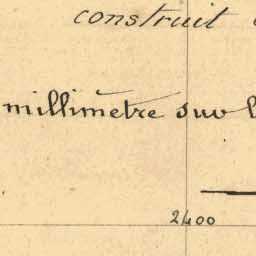 construit
millimètre sur l
2400